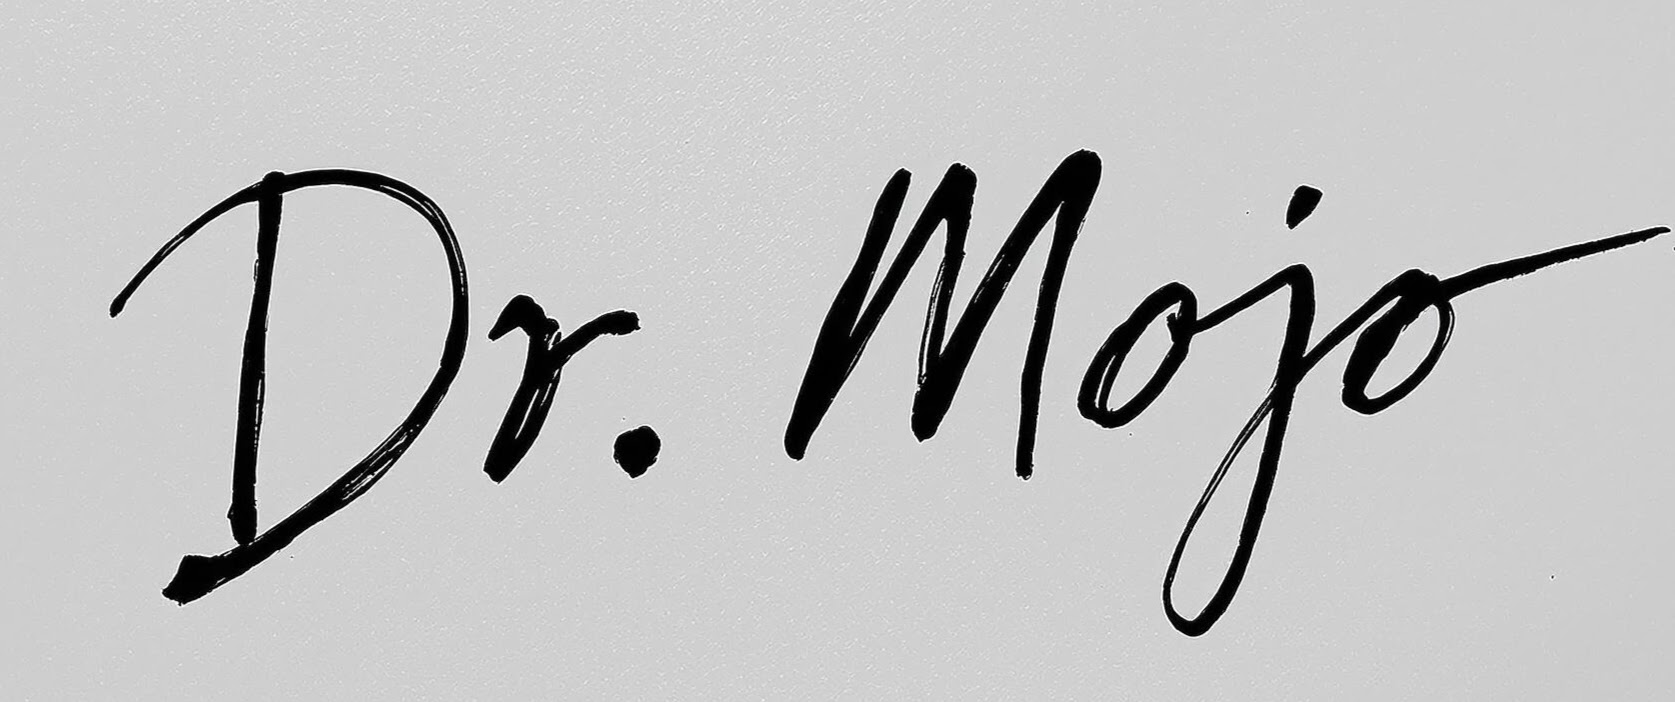 Dr. Mojo